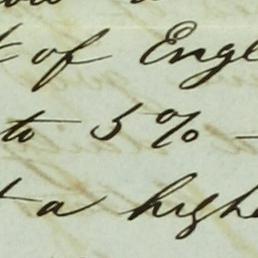 t of Engl
to 5% —
t a highe